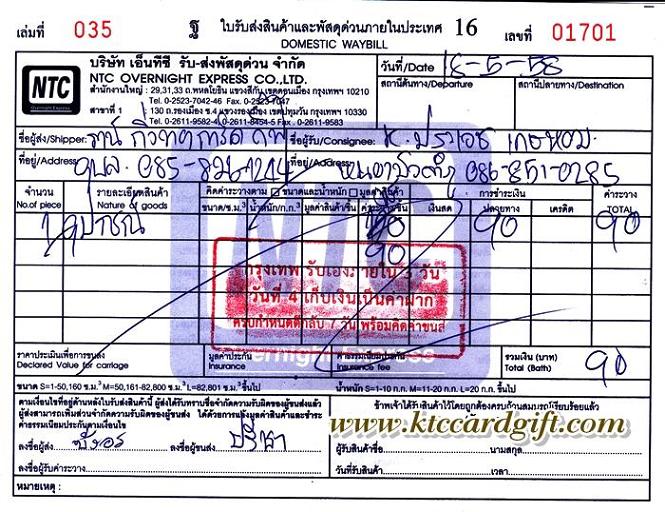 เล่มที่ 035 ฐ ใบรับส่งสินค้าและพัสดุด่วนภายในประเทศ 16 เลขที่ 01701
DOMESTIC WAYBILL
NTC
Overnight Express
บริษัท เอ็นทีซี รับ-ส่งพัสดุด่วน จำกัด
NTC OVERNIGHT EXPRESS CO.,LTD.
สำนักงานใหญ่ : 29,31,33 ถ.พหลโยธิน แขวงสีกัน เขตดอนเมือง กรุงเทพฯ 10210
Tel. 0-2523-7042-46 Fax. 0-2523-7047
สาขาที่ 1 130 ถ.รองเมือง ซ.4 แขวงรองเมือง เขตปทุมวัน กรุงเทพฯ 10330
Tel. 0-2611-9582-4 Fax. 0-2611-9583
วันที่/Date 18-5-58
สถานีต้นทาง/Departure สถานีปลายทาง/Destination
ชื่อผู้ส่ง/Shipper ชื่อผู้รับ/Consignee: K. ประเวช
ที่อยู่/Address 085-826-1244 ที่อยู่/Address 086-851-0285
จำนวน รายละเอียดสินค้า คิดค่าระวางตาม ขนาดและน้ำหนัก มูลค่าสินค้า การชำระเงิน ค่าระวาง
No.of piece Nature of goods ขนาด/ซ.ม.³ น้ำหนัก/ก.ก. มูลค่าสินค้า/ชิ้น ค่าระวาง/ชิ้น เงินสด ปลายทาง เครดิต TOTAL
90 90 90
90
กรุงเทพ รับเองภายใน 3 วัน
วันที่ 4 เก็บเงินเป็นค่าฝาก
ครบกำหนดตีกลับ 7 วัน พร้อมคิดค่าขนส่ง
ราคาประเมินเพื่อการขนส่ง มูลค่าประกัน ค่าธรรมเนียมประกัน รวมเงิน (บาท) 90
Declared Value for carriage Insurance Insurance fee Total (Bath)
ขนาด S=1-50,160 ซ.ม.³ M=50,161-82,800 ซ.ม.³ L=82,801 ซ.ม.³ ขึ้นไป น้ำหนัก S=1-10 ก.ก. M=11-20 ก.ก. L=20 ก.ก. ขึ้นไป
ตามเงื่อนไขที่อยู่ด้านหลังใบส่งสินค้านี้ ผู้ส่งได้รับทราบข้อจำกัดความรับผิดของผู้ขนส่งแล้ว
ผู้ส่งสามารถเพิ่มส่วนจำกัดความรับผิดของผู้ขนส่ง ได้ด้วยการแจ้งมูลค่าสินค้าและชำระ
ค่าธรรมเนียมประกันตามเงื่อนไข
ข้าพเจ้าได้รับสินค้าไว้โดยถูกต้องครบถ้วนสมบูรณ์เรียบร้อยแล้ว
www.ktccardgift.com
ลงชื่อผู้ส่ง ลงชื่อผู้รับส่ง ปรีชา
ผู้รับสินค้าชื่อ นามสกุล
ลงชื่อผู้รับค่าระวาง วันที่รับสินค้า เวลา
หมายเหตุ :